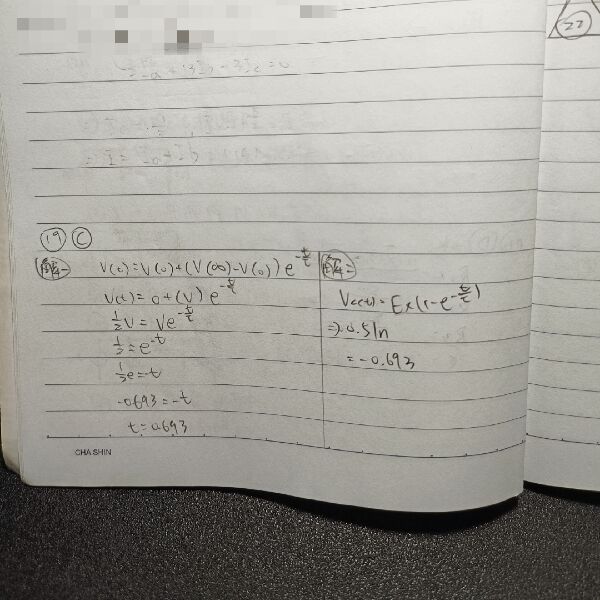 22
19 C
解一
V(t)=V(0)+(V(∞)-V(0))e^{-t/τ}
V(t)=0+(V)e^{-t/τ}
½V=Ve^{-t/τ}
½=e^{-t}
½e=-t
-0.693=-t
t=0.693
解二
Vc(t)=E×(1-e^{-t/τ})
⇒0.5ln
=-0.693
CHA SHIN